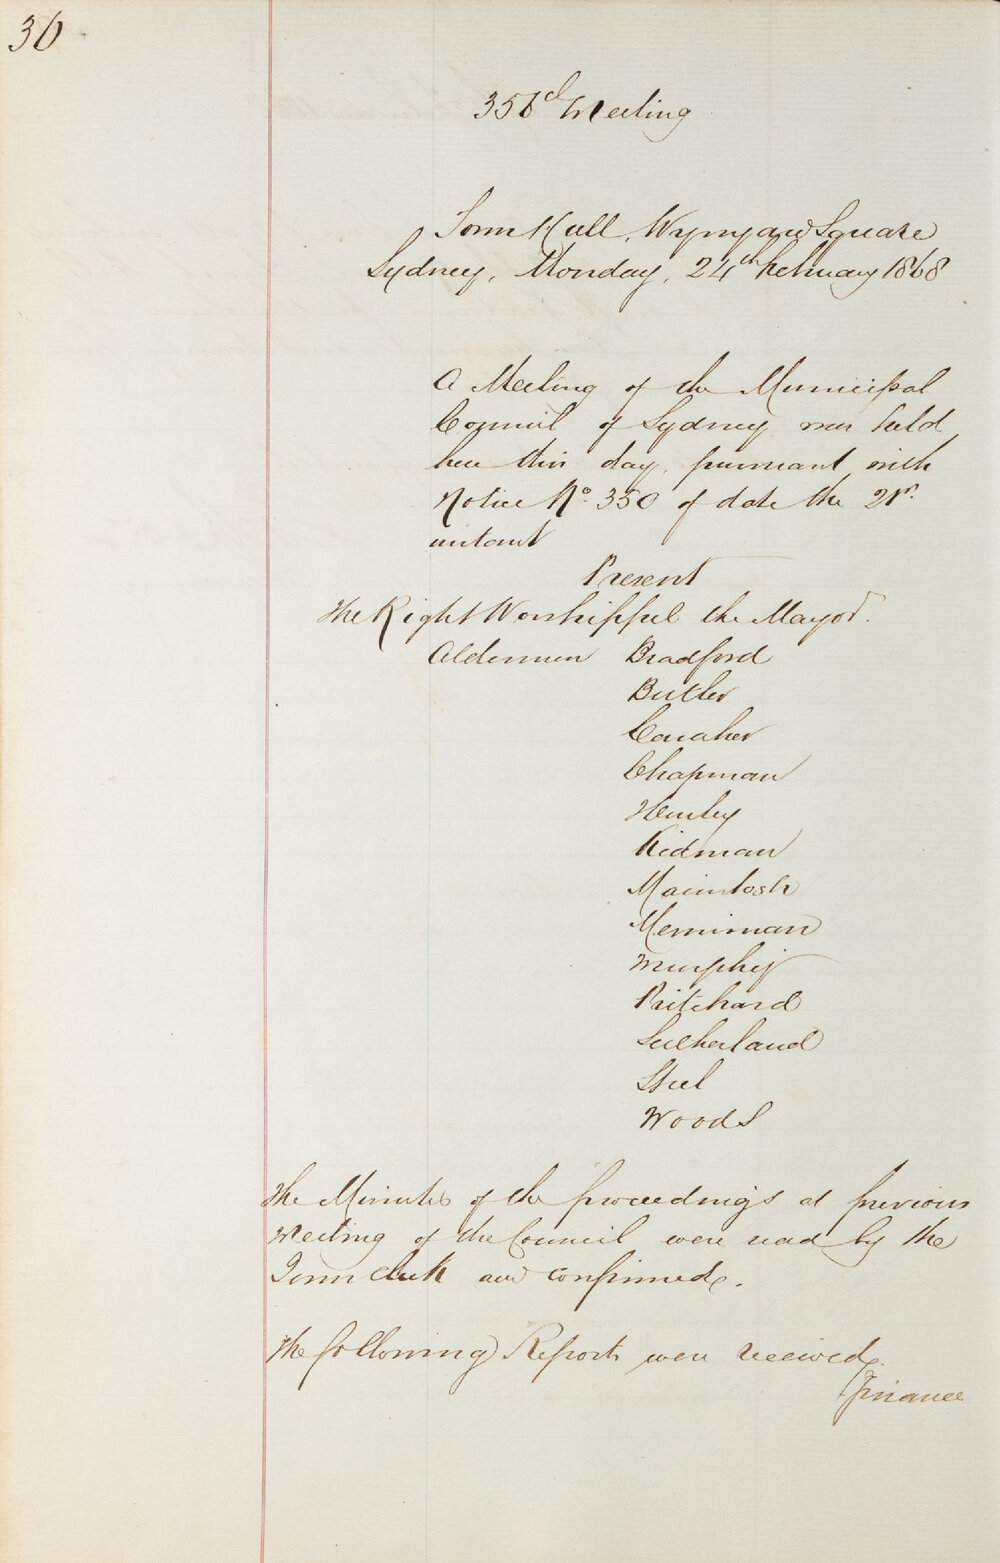 36
356d Meeting
Town Hall, Wynyard Square
Sydney, Monday, 24th February 1868
A Meeting of the Municipal
Council of Sydney was held
here this day, pursuant with
Notice No. 350 of date the 21st.
instant
Present
The Right Worshipful the Mayor.
Aldermen Bradford
Butler
Caraher
Chapman
Hurley
Kidman
Macintosh
Merriman
Murphy
Pritchard
Sutherland
Steel
Woods
The Minutes of the proceedings at previous
Meeting of the Council were read by the
Town Clerk and confirmed.
The following Reports were received.
Finance